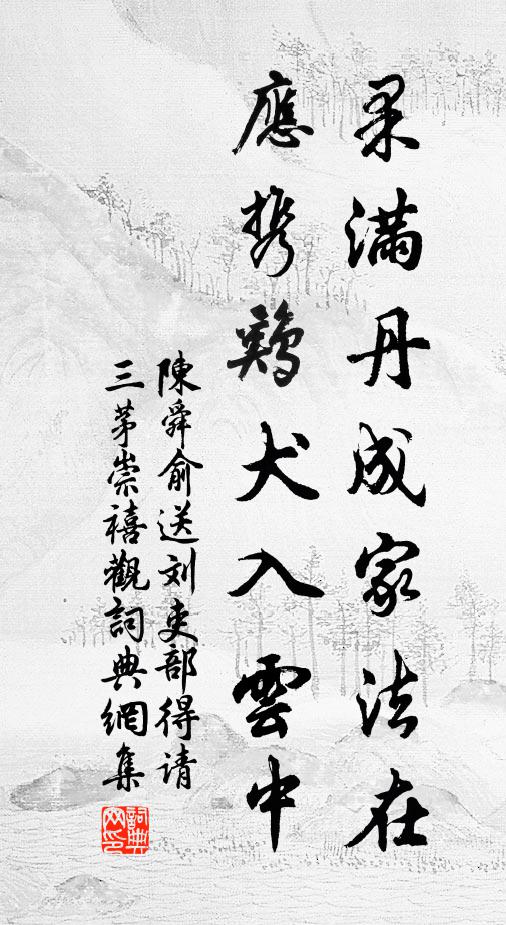 果滿丹成家法在
應携鷄犬入雲中
陳舜俞送刘吏部得请
三茅崇禧觀詞典網集
詞典网印